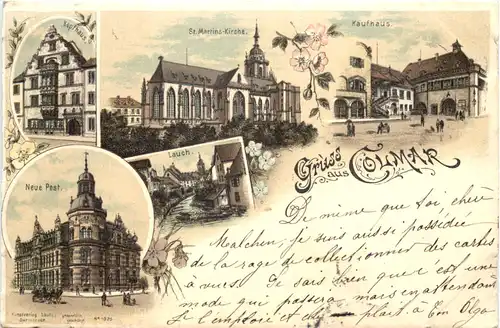 Kopfhaus.
St. Martins-Kirche.
Kaufhaus.
Lauch.
Neue Post.
Gruss aus COLMAR
De même que toi cher
Malchen, je suis aussi possédée
de la rage de collectionner des cartes
à vues. Je sais bien que c'est une
mode qui passera mais en attendant
je l'emploie et plait, à ton Olga